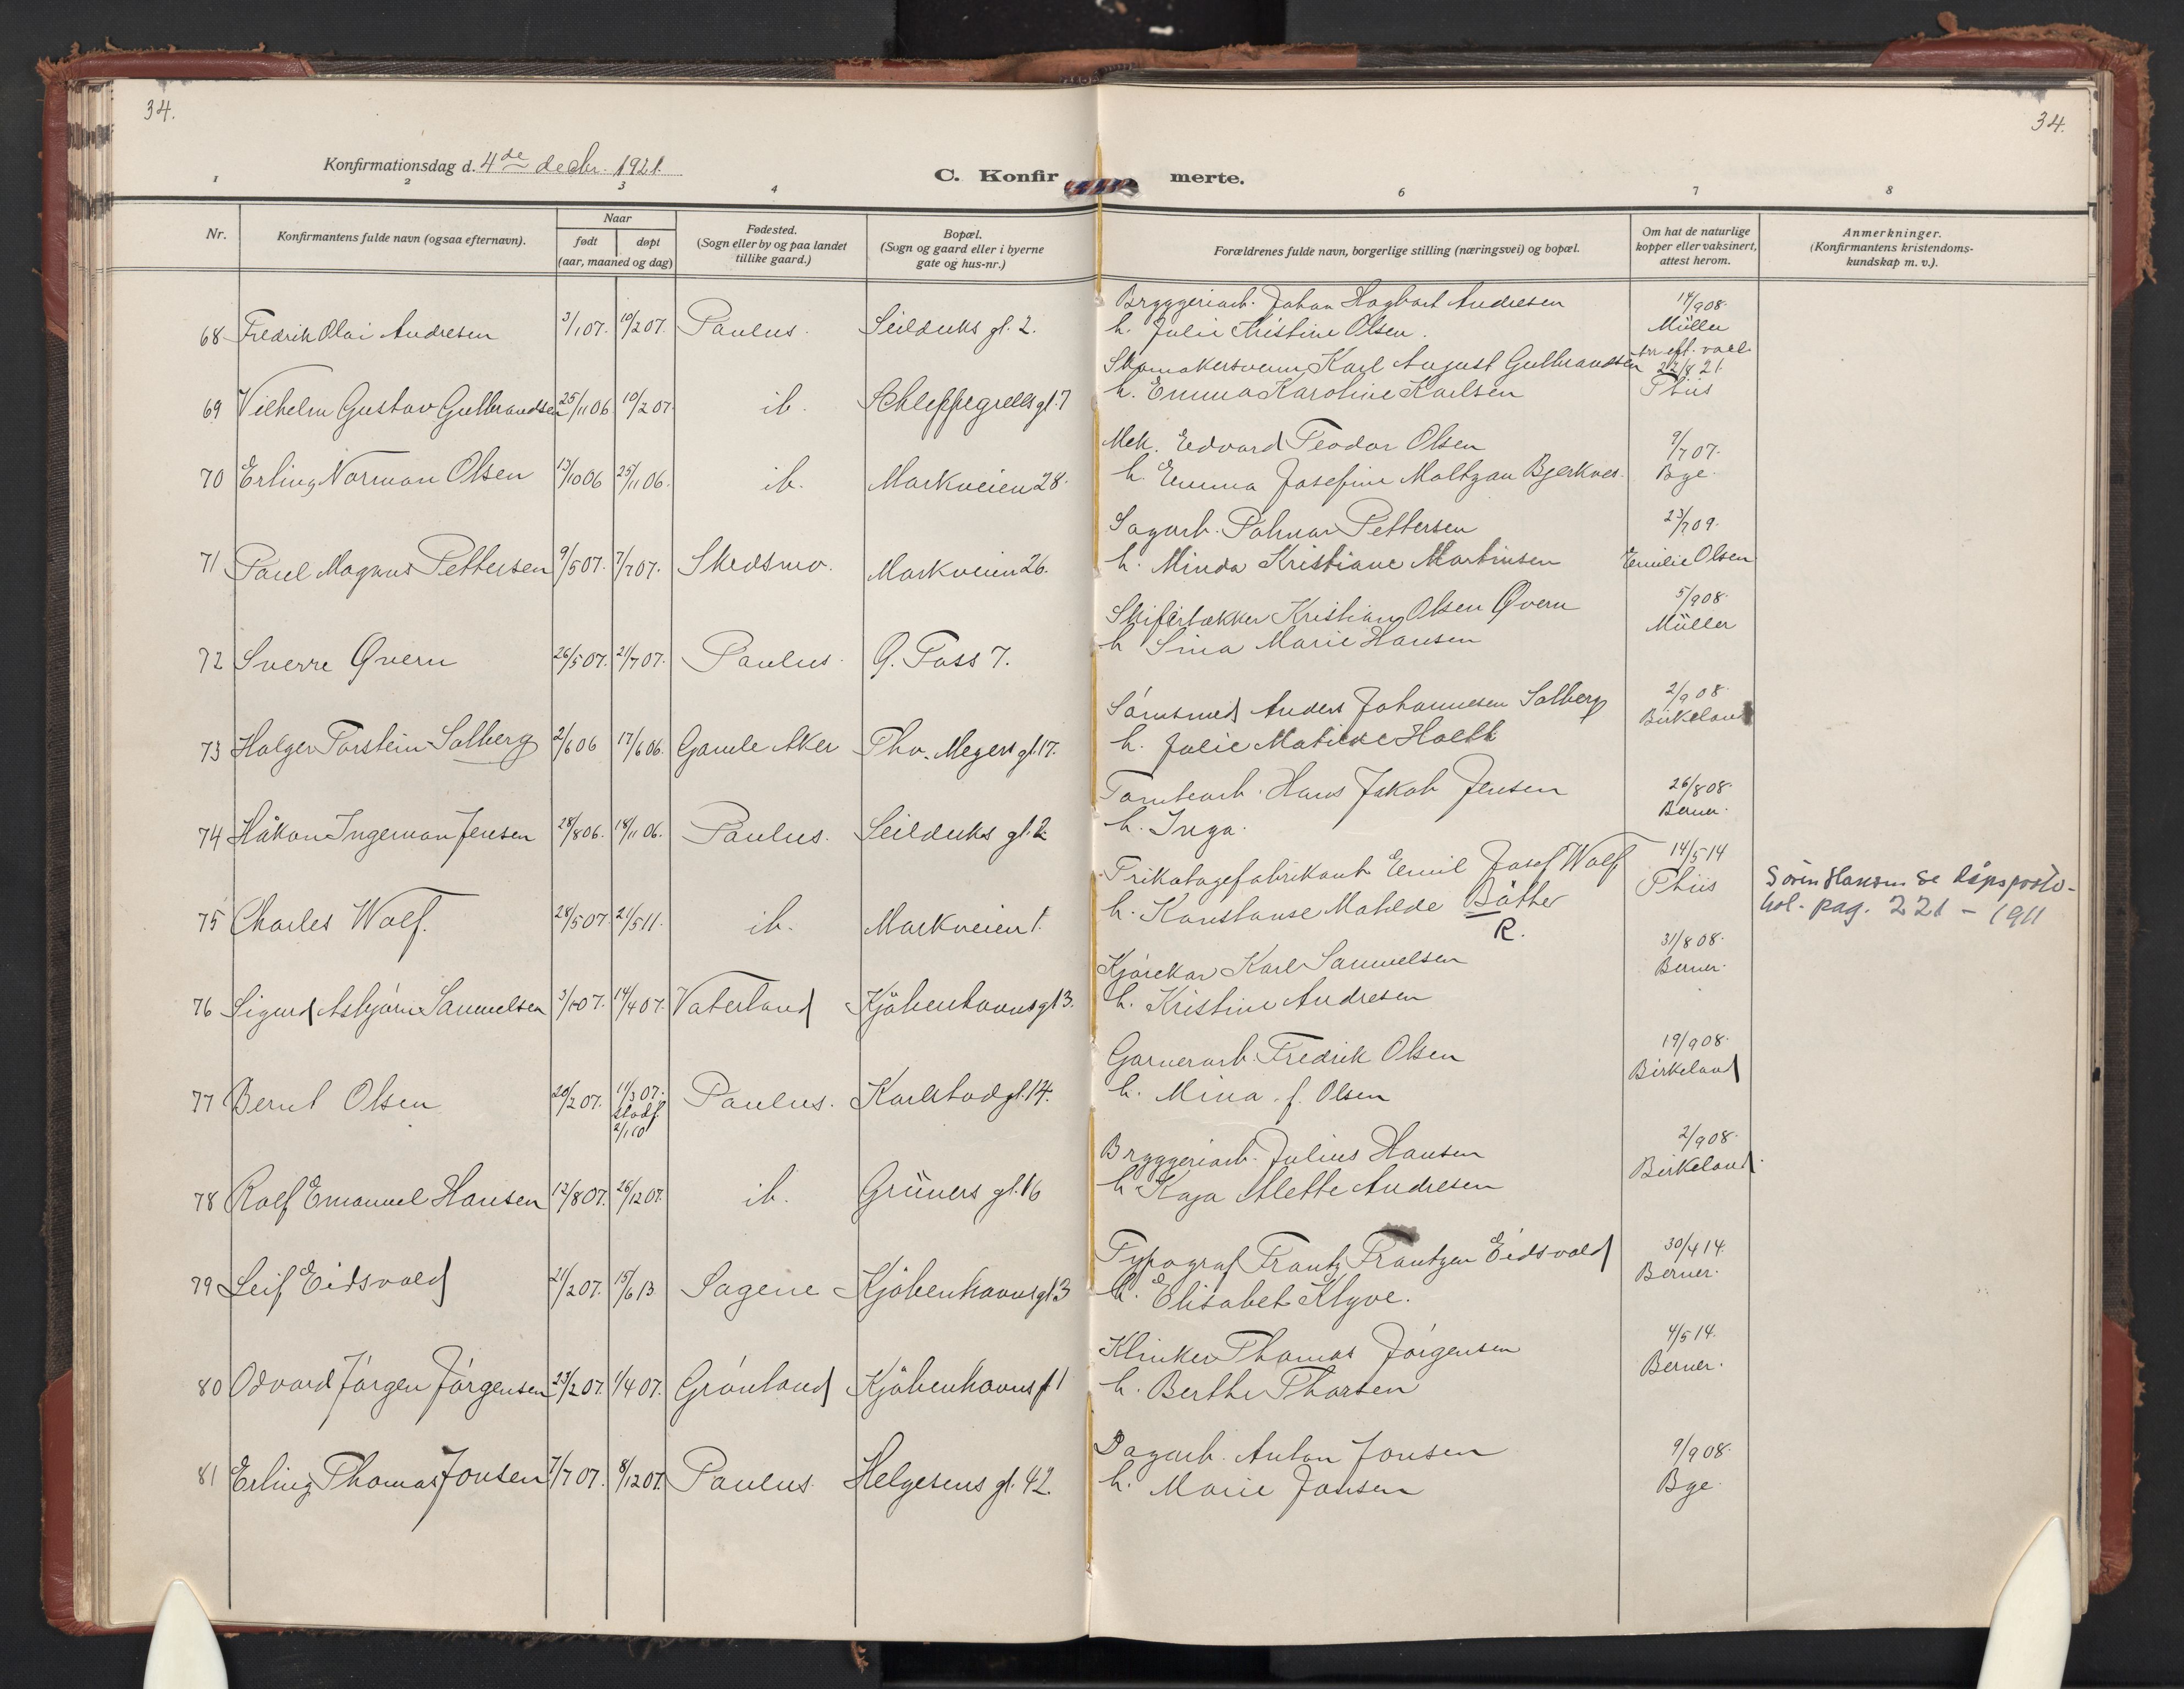 34.
34.
Konfirmationsdag d. 4de decbr. 1921.
C. Konfirmerte.
1 2 3 4 6 7 8
Nr.
Konfirmantens fulde navn (ogsaa efternavn).
Naar
født døpt
(aar, maaned og dag)
Fødested.
(Sogn eller by og paa landet
tillike gaard.)
Bopæl.
(Sogn og gaard eller i byerne
gate og hus-nr.)
Forældrenes fulde navn, borgerlige stilling (næringsvei) og bopæl.
Om hat de naturlige
kopper eller vaksinert,
attest herom.
Anmerkninger.
(Konfirmantens kristendoms-
kundskap m. v.).
68 Fredrik Olai Andresen 3/1 07. 10/2 07. Paulus. Seilduks gt. 2.
Bryggeriarb. Johan Hagbart Andresen
h. Julie Kristine Olsen.
14/9 08.
Müller
69 Vilhelm Gustav Gulbrandsen 25/11 06 10/2 07. ib. Schleppegrells gt. 7
Skomakersvenn Karl August Gulbrandsen
h. Emma Karoline Karlsen
22/8 21
Thiis
70 Erling Norman Olsen 13/10 06 25/11 06. ib. Markveien 28.
Mek. Edvard Teodor Olsen
h. Emma Josefine Maltzau Bjerknes.
9/7 07.
Bge.
71 Paul Magnus Pettersen 9/5 07. 7/7 07. Skedsmo. Markveien 26.
Sagarb. Palmar Pettersen
h. Minda Kristiane Martinsen
23/7 09.
Emilie Olsen
72 Sverre Qvern 26/5 07. 21/7 07. Paulus. Q. Pass 7.
Skifertækker Kristian Olsen Qvern
h. Sina Marie Hansen
5/9 08.
Müller
73 Holger Torstein Solberg 2/6 06 17/6 06. Gamle Aker Tho. Meyers gt. 17.
Sömsmed Anders Johannesen Solberg
h. Julie Matilde Holth
2/9 08.
Birkeland
74 Håkon Ingeman Jensen 28/8 06. 18/11 06. Paulus. Seilduks gt. 2
Tomtearb. Hans Jakob Jensen
h. Inga.
26/8 08.
Berner.
75 Charles Wolf. 28/5 07 21/5 11. ib. Markveien 1.
Trikotagefabrikant Emil Josef Wolf
h. Konstanse Matilde Böther
R.
14/5 14
Thiis
Sören Hansen se dåpsproto-
kol. pag. 221 - 1911
76 Sigurd Asbjörn Samuelsen 3/1 07. 14/4 07. Vaterland Kjöbenhavns gt 3.
Kjörekar Karl Samuelsen
h. Kristine Andresen
31/8 08.
Berner.
77 Bernt Olsen 20/2 07. 11/3 07. Paulus. Karlstad gt. 14.
stadf.
2/1 10
Garverarb. Fredrik Olsen
h. Mina f. Olsen
19/9 08.
Birkeland
78 Rolf Emanuel Hansen 12/8 07. 26/12 07. ib. Grüners gt. 16
Bryggeriarb. Julius Hansen
h. Kaja Alette Andresen
2/9 08.
Birkeland.
79 Leif Eidsvold 21/2 07. 15/6 13 Sagene Kjöbenhavns gt 3
Typograf Frantz Frantzen Eidsvold
h. Elisabet Klyve.
30/4 14.
Berner.
80 Odvard Jörgen Jörgensen 23/2 07. 1/4 07. Grönland Kjöbenhavns gt 1
Klinker Thomas Jörgensen
h. Berthe Thorsen
4/5 14.
Berner.
81 Erling Thomas Jonsen 7/7 07. 8/12 07. Paulus. Helgesens gt. 42.
Dagarb. Anton Jonsen
h. Marie Jonsen
9/9 08.
Bge.